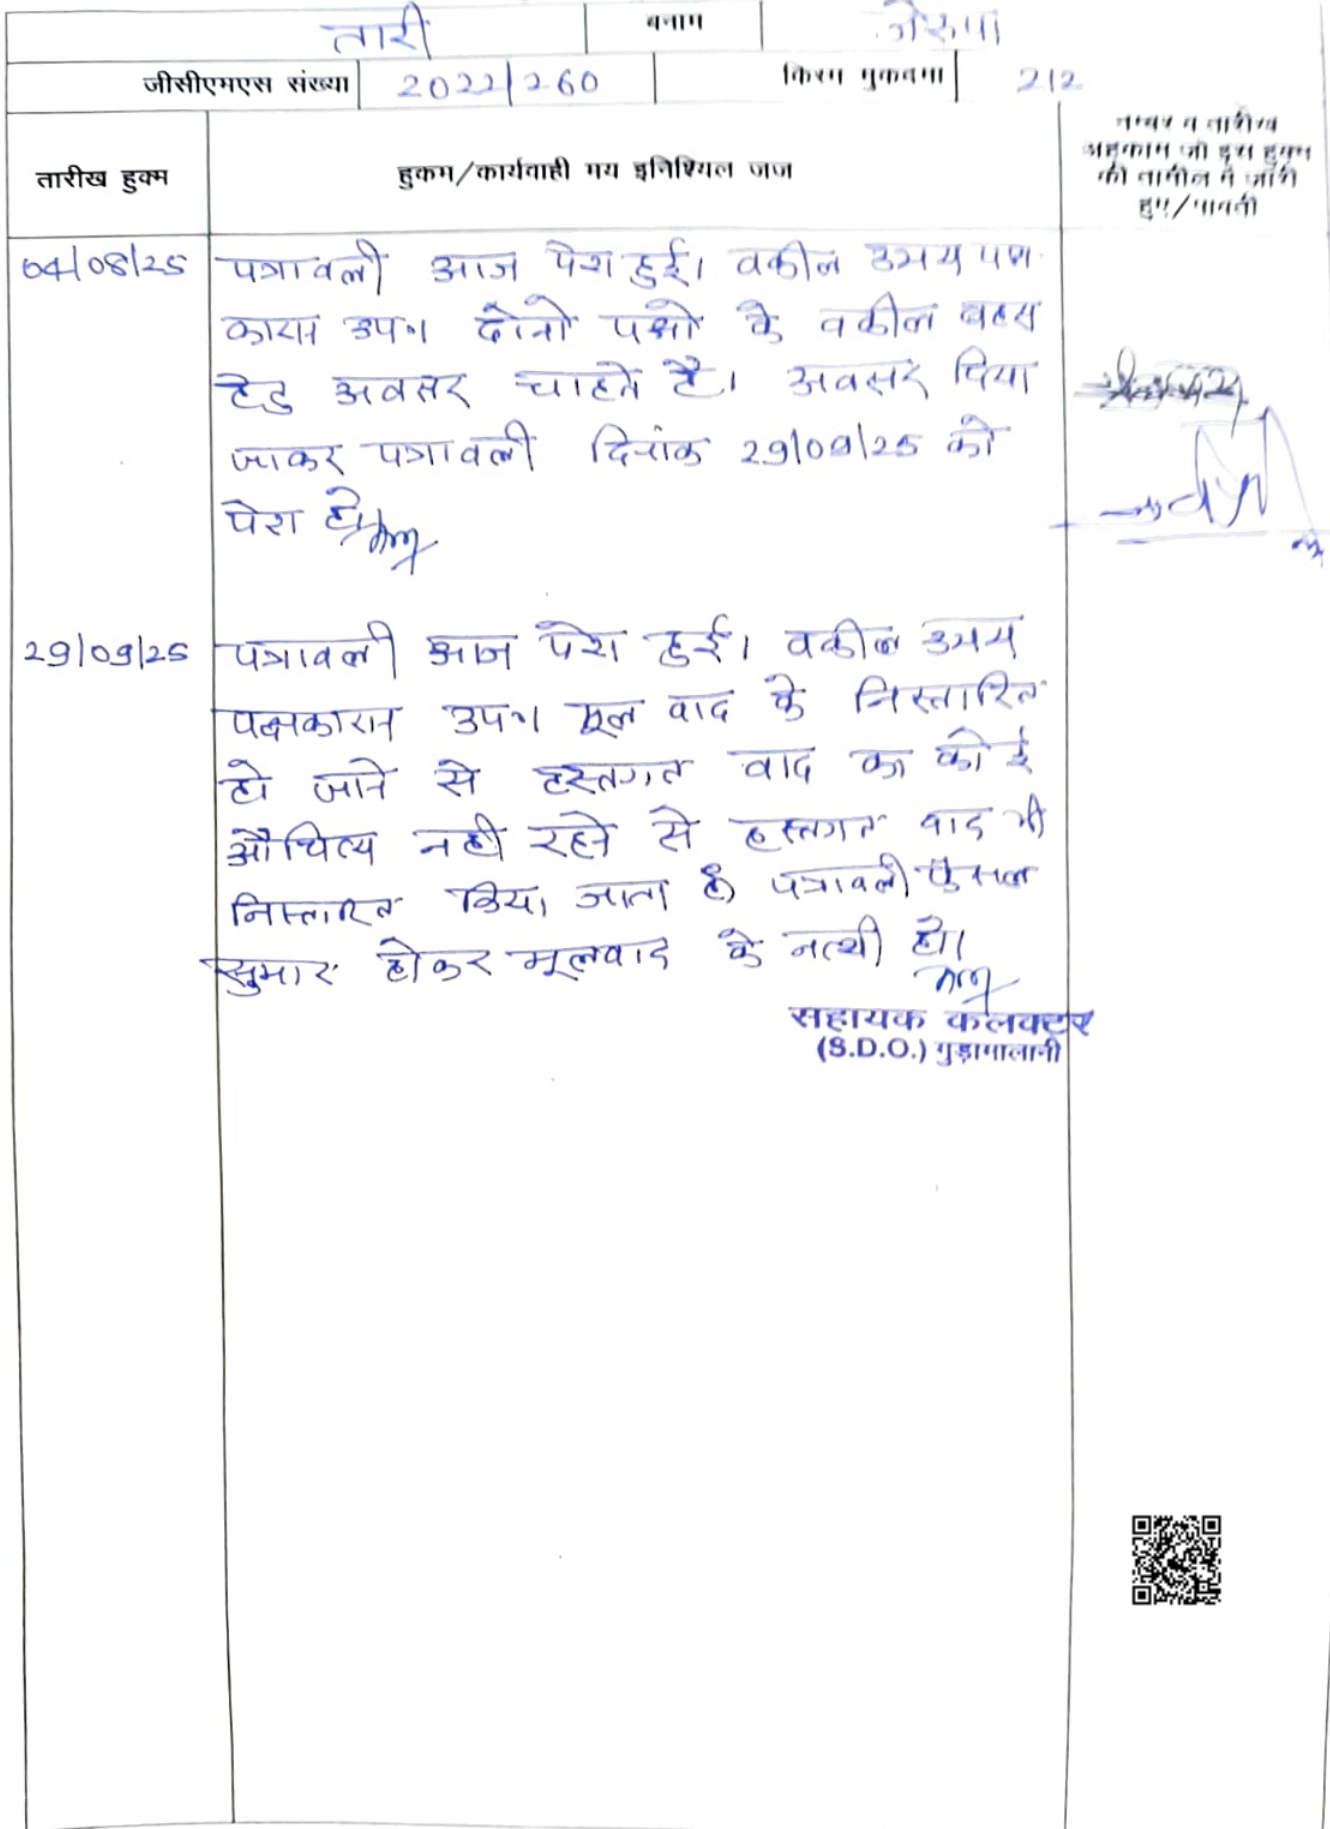 तारी बनाम जेरुपा
जीसीएमएस संख्या 2022/260 किस्म मुकदमा 212
तारीख हुक्म
हुकम/कार्यवाही मय इनिश्यिल जज
नम्बर व तारीख
अहकाम जो इस हुक्म
की तामील में जारी
हुए/पावती
04/08/25 पत्रावली आज पेश हुई। वकील उभय पक्ष
कारान उप० दोनो पक्षो के वकील बहस
हेतु अवसर चाहते है। अवसर दिया
जाकर पत्रावली दिनांक 29/09/25 को
पेश हो
29/09/25 पत्रावली आज पेश हुई। वकील उभय
पक्षकारान उप० मूल वाद के निस्तारित
हो जाने से हस्तगत वाद का कोई
औचित्य नही रहने से हस्तगत वाद भी
निस्तारित किया जाता है पत्रावली फैसल
सुमार होकर मूलवाद के नत्थी हो।
सहायक कलक्टर
(S.D.O.) गुड़ामालानी